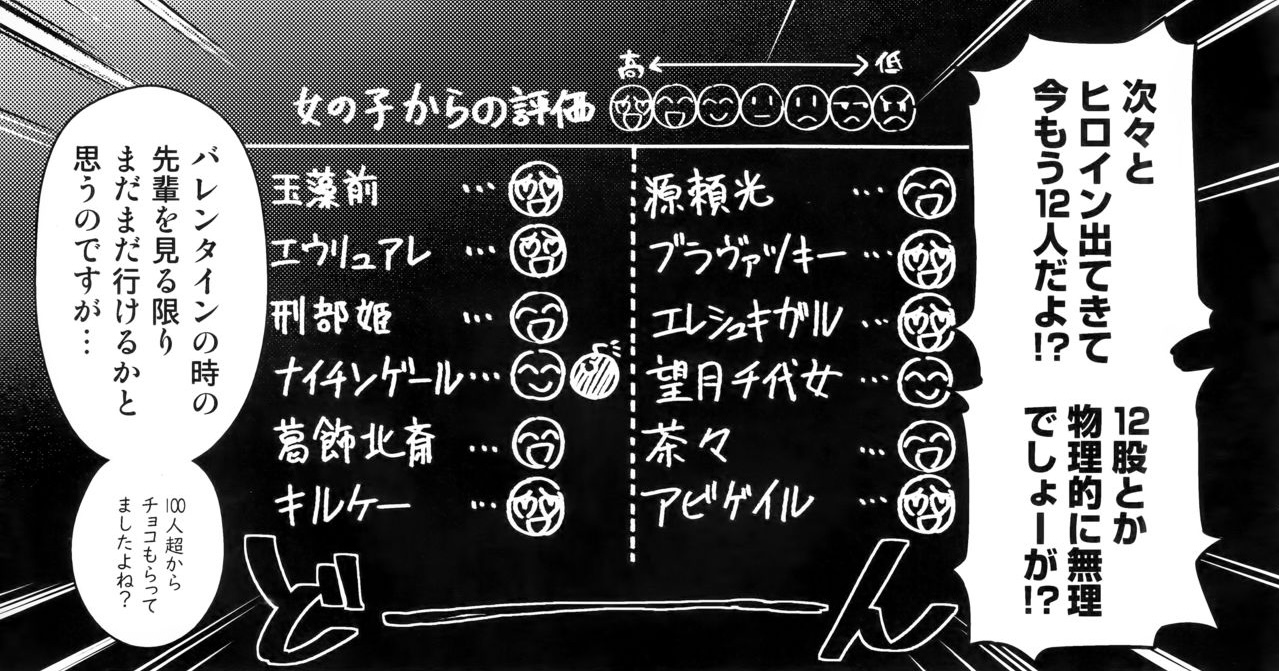 次々と
ヒロイン出てきて
今もう12人だよ!?
12股とか
物理的に無理
でしょーが!?
高 低
女の子からの評価
玉藻前 …
エウリュアレ …
刑部姫 …
ナイチンゲール…
葛飾北斎 …
キルケー …
源頼光 …
ブラヴァツキー …
エレシュキガル …
望月千代女 …
茶々 …
アビゲイル …
どーん
バレンタインの時の
先輩を見る限り
まだまだ行けるかと
思うのですが…
100人超から
チョコもらって
ましたよね?